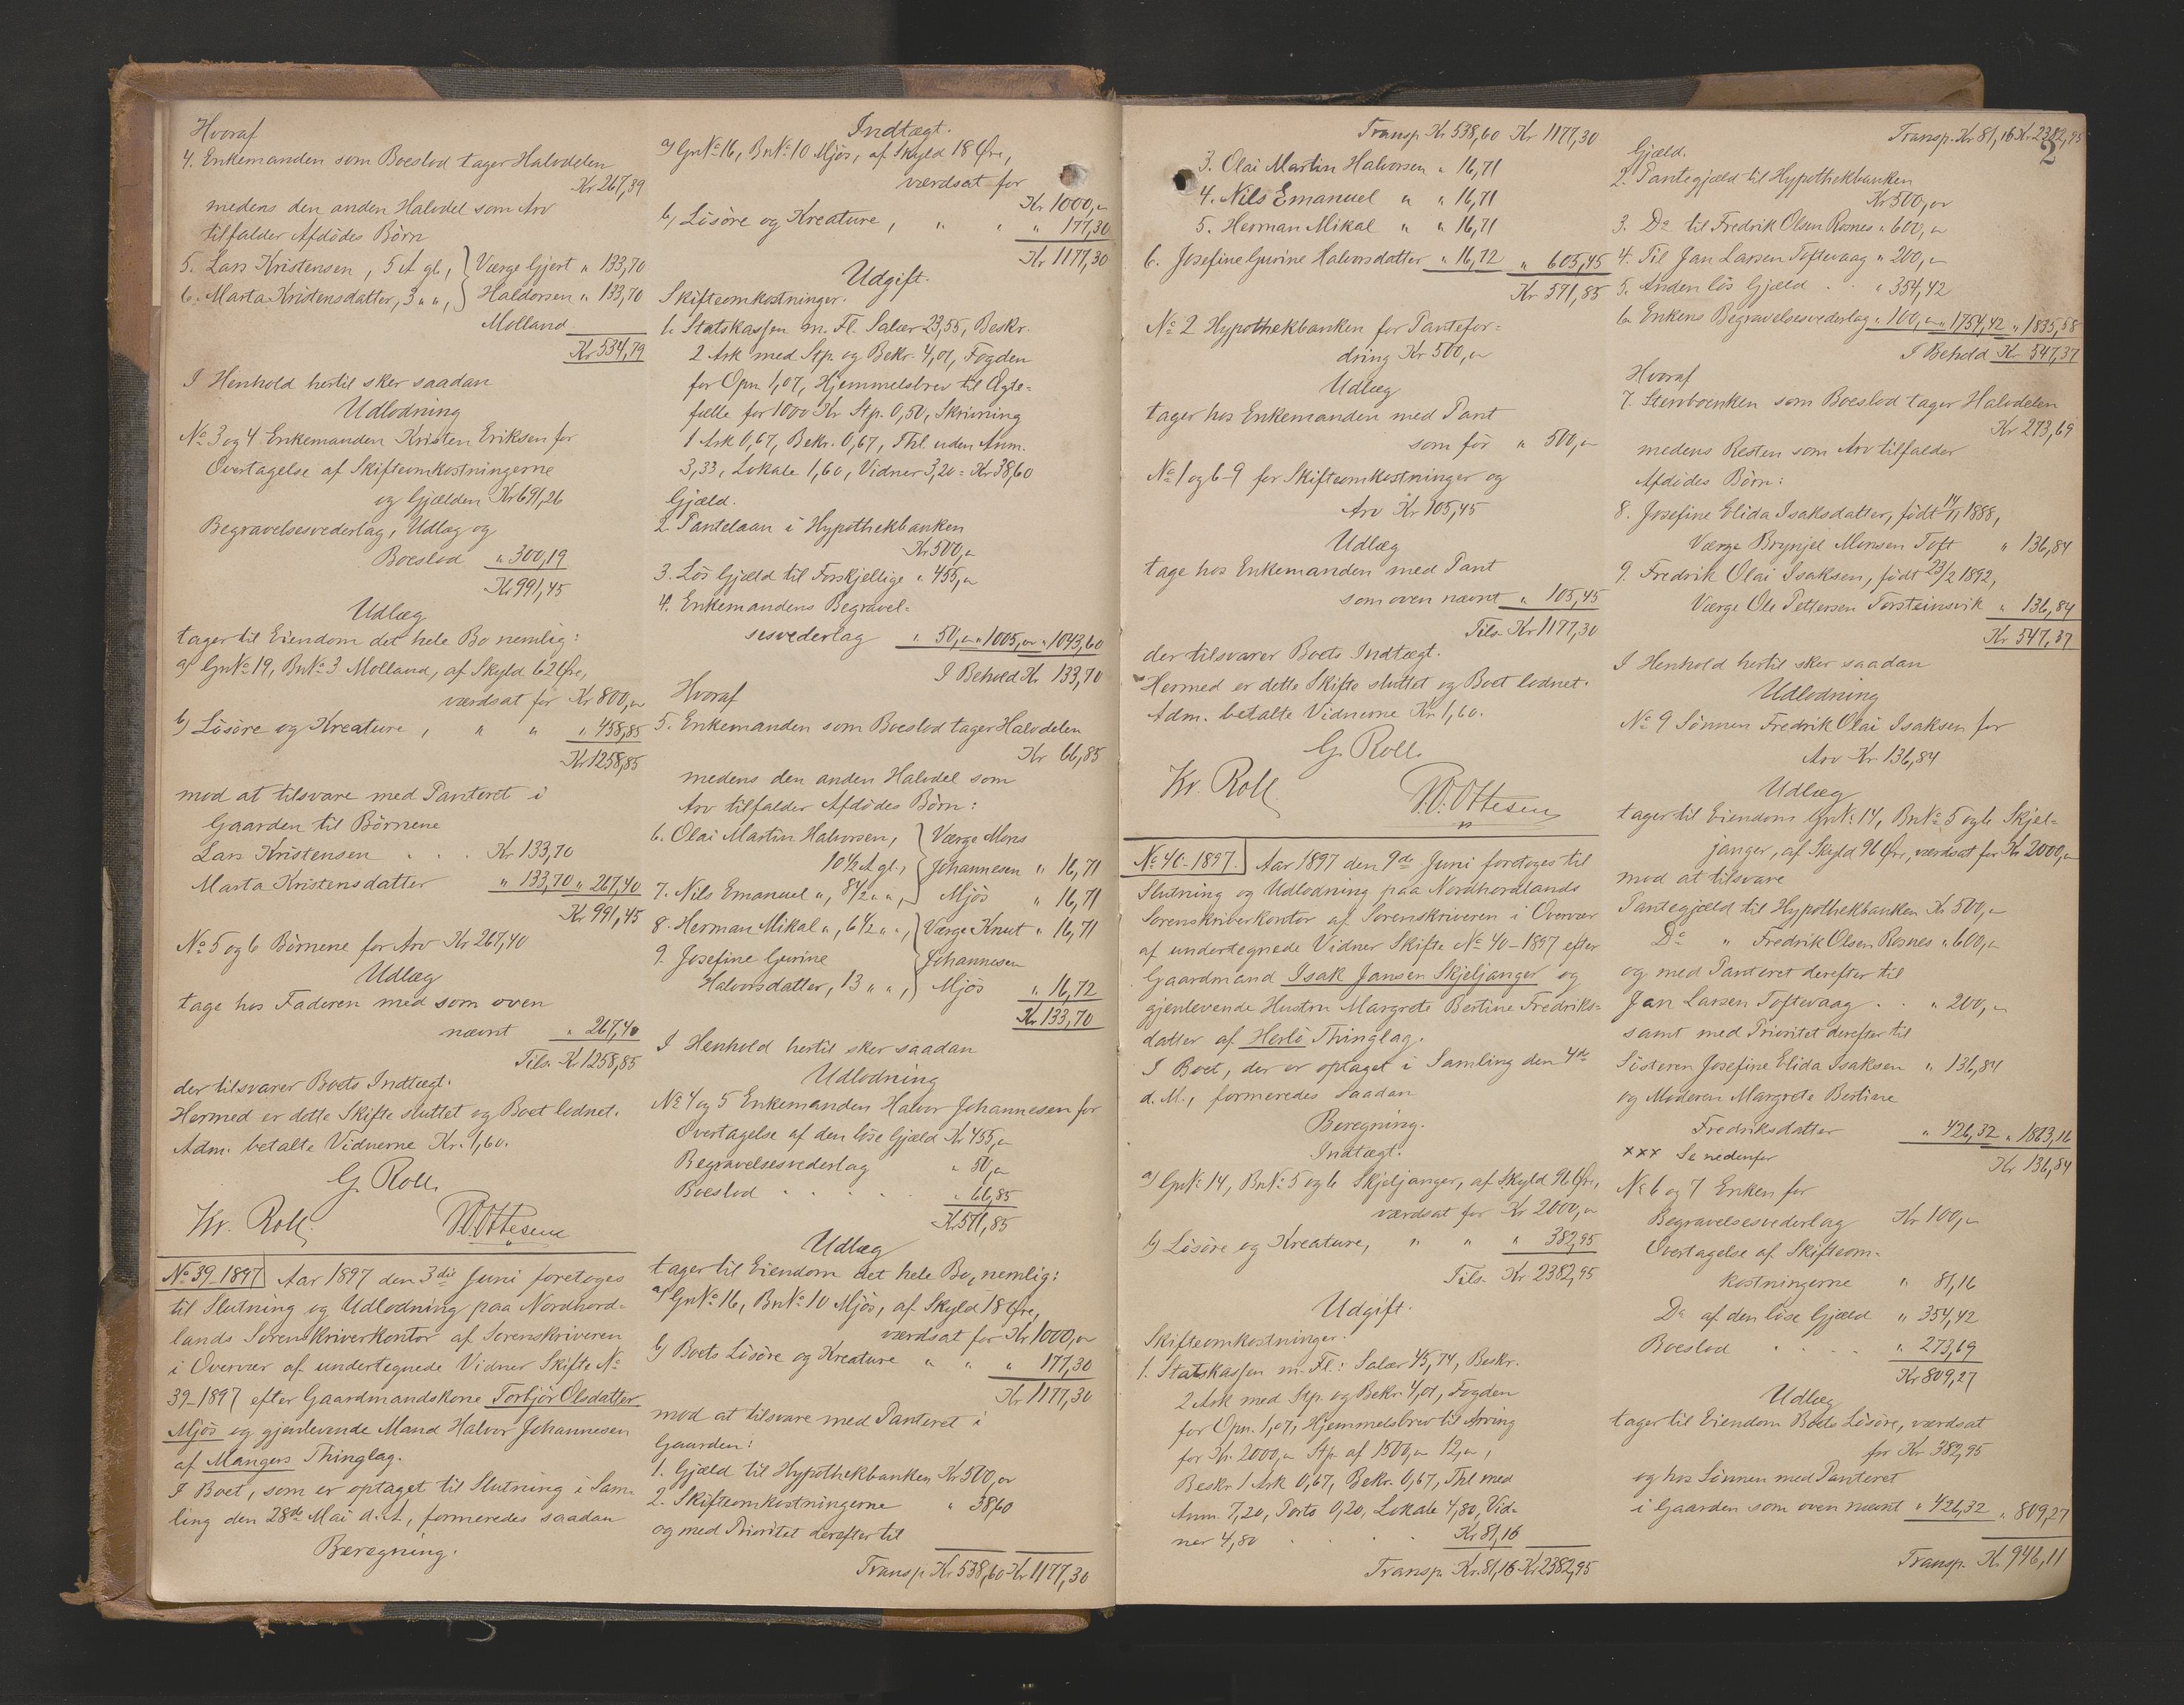 Hvoraf
4. Enkemanden som Boeslod tager Halvdelen
Kr 267,39
medens den anden Halvdel som Arv
tilfalder Afdødes Børn
5. Lars Kristensen, 5 A gl., } Værge Gjert " 133,70
6. Marta Kristensdatter, 3 " ", } Haldorsen " 133,70
Molland
Kr 534,79
I Henhold hertil sker saadan
Udlodning
No 3 og 4 Enkemanden Kristen Eriksen for
Overtagelse af Skifteomkostningerne
og Gjælden Kr 691,26
Begravelsesvederlag, Udlæg og
Boeslod " 300,19
Kr 991,45
Udlæg
tager til Eiendom det hele Bo nemlig:
a) GnNo 19, BnNo 3 Molland, af Skyld 62 Øre,
værdsat for Kr 800,"
b) Løsøre og Kreature, " " " 458,85
Kr 1258,85
mod at tilsvare med Panteret i
Gaarden til Børnene
Lars Kristensen . . . Kr 133,70
Marta Kristensdatter " 133,70 " 267,40
Kr 991,45
No 5 og 6 Børnene for Arv Kr 267,40
Udlæg
tage hos Faderen med som oven
nævnt " 267,40
Tils. Kr 1258,85
der tilsvarer Boets Indtægt.
Hermed er dette Skifte sluttet og Boet lodnet.
Adm. betalte Vidnerne Kr. 1,60.
G. Roll.
Kr. Roll. W. Ottesen
No 39-1897 Aar 1897 den 3die Juni foretoges
til Slutning og Udlodning paa Nordhord-
lands Sorenskriverkontor af Sorenskriveren
i Overvær af undertegnede Vidner Skifte No
39-1897 efter Gaardmandskone Torbjør Olsdatter
Mjøs og gjenlevende Mand Halvor Johannesen
af Mangers Thinglag.
I Boet, som er optaget til Slutning i Sam-
ling den 28de Mai d. A., formeredes saadan
Beregning.
Indtægt.
a) GnNo 16, BnNo 10 Mjøs, af Skyld 18 Øre,
værdsat for
Kr 1000,"
b) Løsøre og Kreature, " " " 177,30
Kr 1177,30
Udgift.
Skifteomkostninger.
1. Statskassen m. Fl. Salær 23,55, Beskr.
2 Ark med Stp. og Bekr. 4,01, Fogden
for Opn. 1,07, Hjemmelsbrev til Ægte-
fælle for 1000 Kr Stp. 0,50, Skrivning
1 Ark 0,67, Bekr. 0,67, Thl. uden Anm.
3,33, Lokale 1,60, Vidner 3,20 = Kr 38,60
Gjæld.
2. Pantelaan i Hypothekbanken
Kr 500,"
3. Løs Gjæld til Forskjellige " 455,"
4. Enkemandens Begravel-
sesvederlag " 50," " 1005," " 1043,60
I Behold Kr 133,70
Hvoraf
5. Enkemanden som Boeslod tager Halvdelen
Kr 66,85
medens den anden Halvdel som
Arv tilfalder Afdødes Børn:
6. Olai Martin Halvorsen, } Værge Mons
10 1/2 A gl., } Johannesen " 16,71
7. Nils Emanuel ", 8 1/2 " ", } Mjøs " 16,71
8. Herman Mikal ", 6 1/2 " ", } Værge Knut " 16,71
9. Josefine Gurine } Johannesen
Halvorsdatter, 13 " ", } Mjøs " 16,72
Kr 133,70
I Henhold hertil sker saadan
Udlodning
No 4 og 5 Enkemanden Halvor Johannesen for
Overtagelse af den løse Gjæld Kr 455,"
Begravelsesvederlag " 50,"
Boeslod . . . . " 66,85
Kr 571,85
Udlæg
tager til Eiendom det hele Bo, nemlig:
a) GnNo 16, BnNo 10 Mjøs, af Skyld 18 Øre,
værdsat for Kr 1000,"
b) Boets Løsøre og Kreature " " " 177,30
Kr 1177,30
mod at tilsvare med Panteret i
Gaarden:
1. Gjæld til Hypothekbanken Kr 500,"
2. Skifteomkostningerne " 38,60
og med Prioritet derefter til
Transp. Kr 538,60 Kr 1177,30
Transp. Kr 538,60 Kr 1177,30
3. Olai Martin Halvorsen " 16,71
4. Nils Emanuel " " 16,71
5. Herman Mikal " " 16,71
6. Josefine Gurine Halvorsdatter " 16,72 " 605,45
Kr 571,85
No 2 Hypothekbanken for Pantefor-
dring Kr 500,"
Udlæg
tager hos Enkemanden med Pant
som før " 500,"
No 1 og 6-9 for Skifteomkostninger og
Arv Kr 105,45
Udlæg
tage hos Enkemanden med Pant
som oven nævnt " 105,45
Tils. Kr 1177,30
der tilsvarer Boets Indtægt.
Hermed er dette Skifte sluttet og Boet lodnet.
Adm. betalte Vidnerne Kr. 1,60.
G. Roll.
Kr. Roll. W. Ottesen
No 40-1897. Aar 1897 den 9de Juni foretoges til
Slutning og Udlodning paa Nordhordlands
Sorenskriverkontor af Sorenskriveren i Overvær
af undertegnede Vidner Skifte No 40-1897 efter
Gaardmand Isak Jansen Skjeljanger og
gjenlevende Hustru Margrete Bertine Fredriks-
datter af Herlø Thinglag.
I Boet, der er optaget i Samling den 4de
d. M., formeredes saadan
Beregning.
Indtægt.
a) GnNo 14, BnNo 5 og 6 Skjeljanger, af Skyld 96 Øre,
værdsat for Kr 2000,"
b) Løsøre og Kreature, " " " 382,95
Tils. Kr 2382,95
Udgift.
Skifteomkostninger.
1. Statskassen m. Fl.: Salær 45,74, Beskr.
2 Ark med Stp. og Bekr. 4,01, Fogden
for Opn. 1,07, Hjemmelsbrev til Arving
for Kr. 2000," Stp. af 1500," 12,",
Beskr. 1 Ark 0,67, Bekr. 0,67, Thl. med
Anm. 7,20, Porto 0,20, Lokale 4,80, Vid-
ner 4,80 . . . Kr 81,16
Transp. Kr. 81,16 Kr 2382,95
Transp. Kr 81,16 Kr. 2382,95
2
Gjæld.
2. Pantegjæld til Hypothekbanken
Kr 500,"
3. Do til Fredrik Olsen Rosnes " 600,"
4. Til Jan Larsen Toftevaag " 200,"
5. Anden løs Gjæld . . " 354,42
6. Enkens Begravelsesvederlag " 100," " 1754,42 " 1835,58
I Behold Kr 547,37
Hvoraf
7. Stervboenken som Boeslod tager Halvdelen
Kr 273,69
medens Resten som Arv tilfalder
Afdødes Børn:
8. Josefine Elida Isaksdatter, født 14/11 1888,
Værge Brynjel Monsen Toft " 136,84
9. Fredrik Olai Isaksen, født 23/2 1892,
Værge Ole Pettersen Torsteinsvik " 136,84
Kr 547,37
I Henhold hertil sker saadan
Udlodning
No 9 Sønnen Fredrik Olai Isaksen for
Arv Kr 136,84
Udlæg
tager til Eiendom GnNo 14, BnNo 5 og 6 Skjel-
janger, af Skyld 96 Øre, værdsat for Kr 2000,"
mod at tilsvare
Pantegjæld til Hypothekbanken Kr 500,"
Do " Fredrik Olsen Rosnes " 600,"
og med Panteret derefter til
Jan Larsen Toftevaag . . " 200,"
samt med Prioritet derefter til
Søsteren Josefine Elida Isaksen " 136,84
og Moderen Margrete Bertine
Fredriksdatter " 426,32 " 1863,16
xxx Se nedenfor Kr 136,84
No 6 og 7 Enken for
Begravelsesvederlag Kr 100,"
Overtagelse af Skifteom-
kostningerne " 81,16
Do af den løse Gjæld " 354,42
Boeslod . . . . " 273,69
Kr 809,27
Udlæg
tager til Eiendom Boets Løsøre, værdsat
for Kr. 382,95
og hos Sønnen med Panteret
i Gaarden som oven nævnt " 426,32 " 809,27
Transp. Kr. 946,11